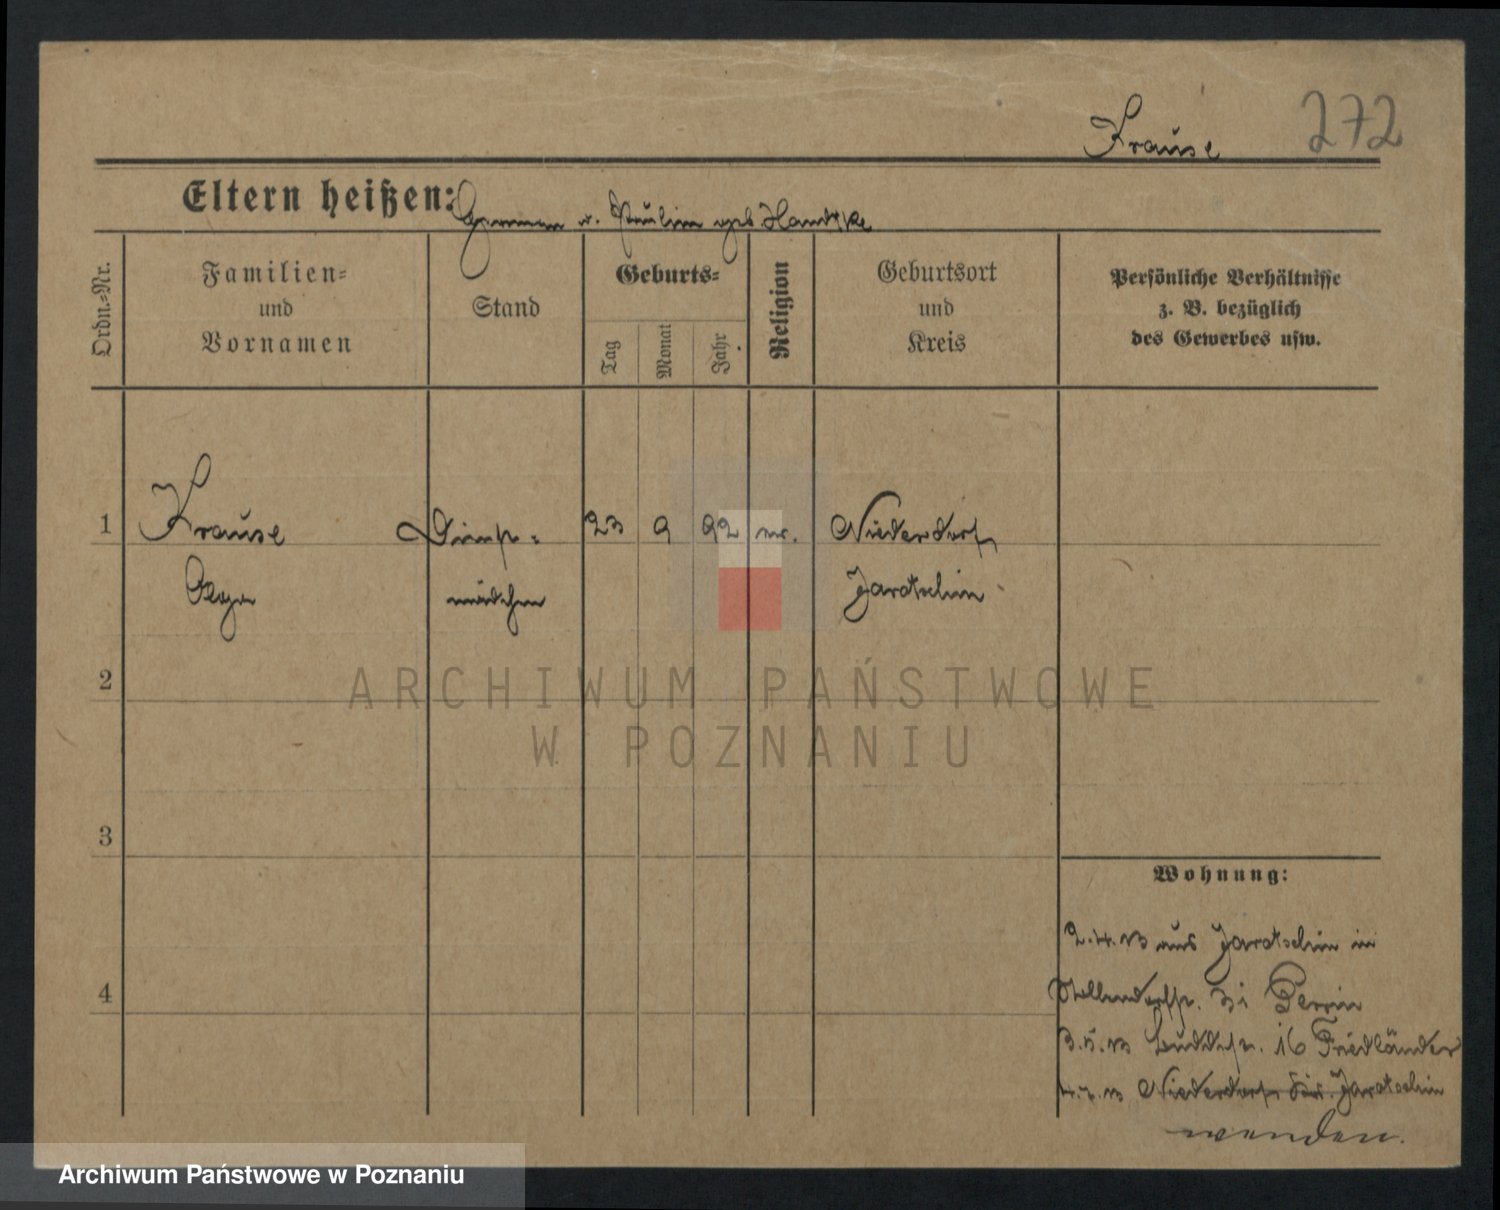 Krause 272
Eltern heißen: Herman u. Paulin geb Handtke
Ordn.=Nr.
Familien=
und
Vornamen
Stand
Geburts=
Tag
Monat
Jahr
Religion
Geburtsort
und
Kreis
Persönliche Verhältnisse
z. B. bezüglich
des Gewerbes usw.
1 Krause Dienst= 23 9 92 Niederdorf
mädchen Jarotschin
2
3
4
Wohnung:
2.4.13 aus Jarotschin in
31
3.5.13 16 Friedländer
13 Niederdorf Kr. Jarotschin
wenden.
ARCHIWUM PAŃSTWOWE
W POZNANIU
Archiwum Państwowe w Poznaniu